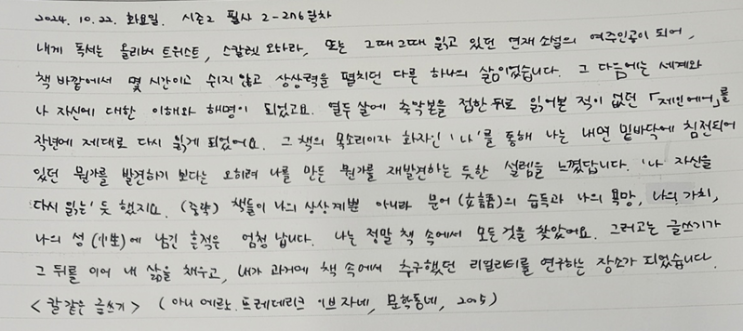 2024. 10. 22. 화요일. 시즌2 필사 2-276일차
내게 독서는 올리버 트위스트, 스칼렛 오하라, 또는 그때그때 읽고 있던 연재소설의 여주인공이 되어,
책 바깥에서 몇 시간이고 쉬지 않고 상상력을 펼치던 다른 하나의 삶이었습니다. 그 다음에는 세계와
나 자신에 대한 이해와 해명이 되었고요. 열두 살에 축약본을 접한 뒤로 읽어본 적이 없던 「제인에어」를
작년에 제대로 다시 읽게 되었어요. 그 책의 목소리이자 화자인 '나'를 통해 나는 내면 밑바닥에 침전되어
있던 뭔가를 발견하기 보다는 오히려 나를 만든 뭔가를 재발견하는 듯한 설렘을 느꼈답니다. '나 자신을
다시 읽는' 듯 했지요. (중략) 책들이 나의 상상계뿐 아니라 문어(文語)의 습득과 나의 욕망, 나의 가치,
나의 성(小生)에 남긴 흔적은 엄청 납니다. 나는 정말 책 속에서 모든 것을 찾았어요. 그러고는 글쓰기가
그 뒤를 이어 내 삶을 채우고, 내가 과거에 책 속에서 추구했던 리얼리티를 연구하는 장소가 되었습니다.
<칼 같은 글쓰기> (아니 에르노. 프레데리크 이브 자네, 문학동네, 2005)